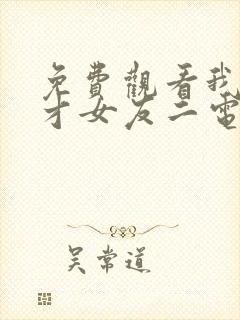 免費觀看我
才女友二電
吴常道